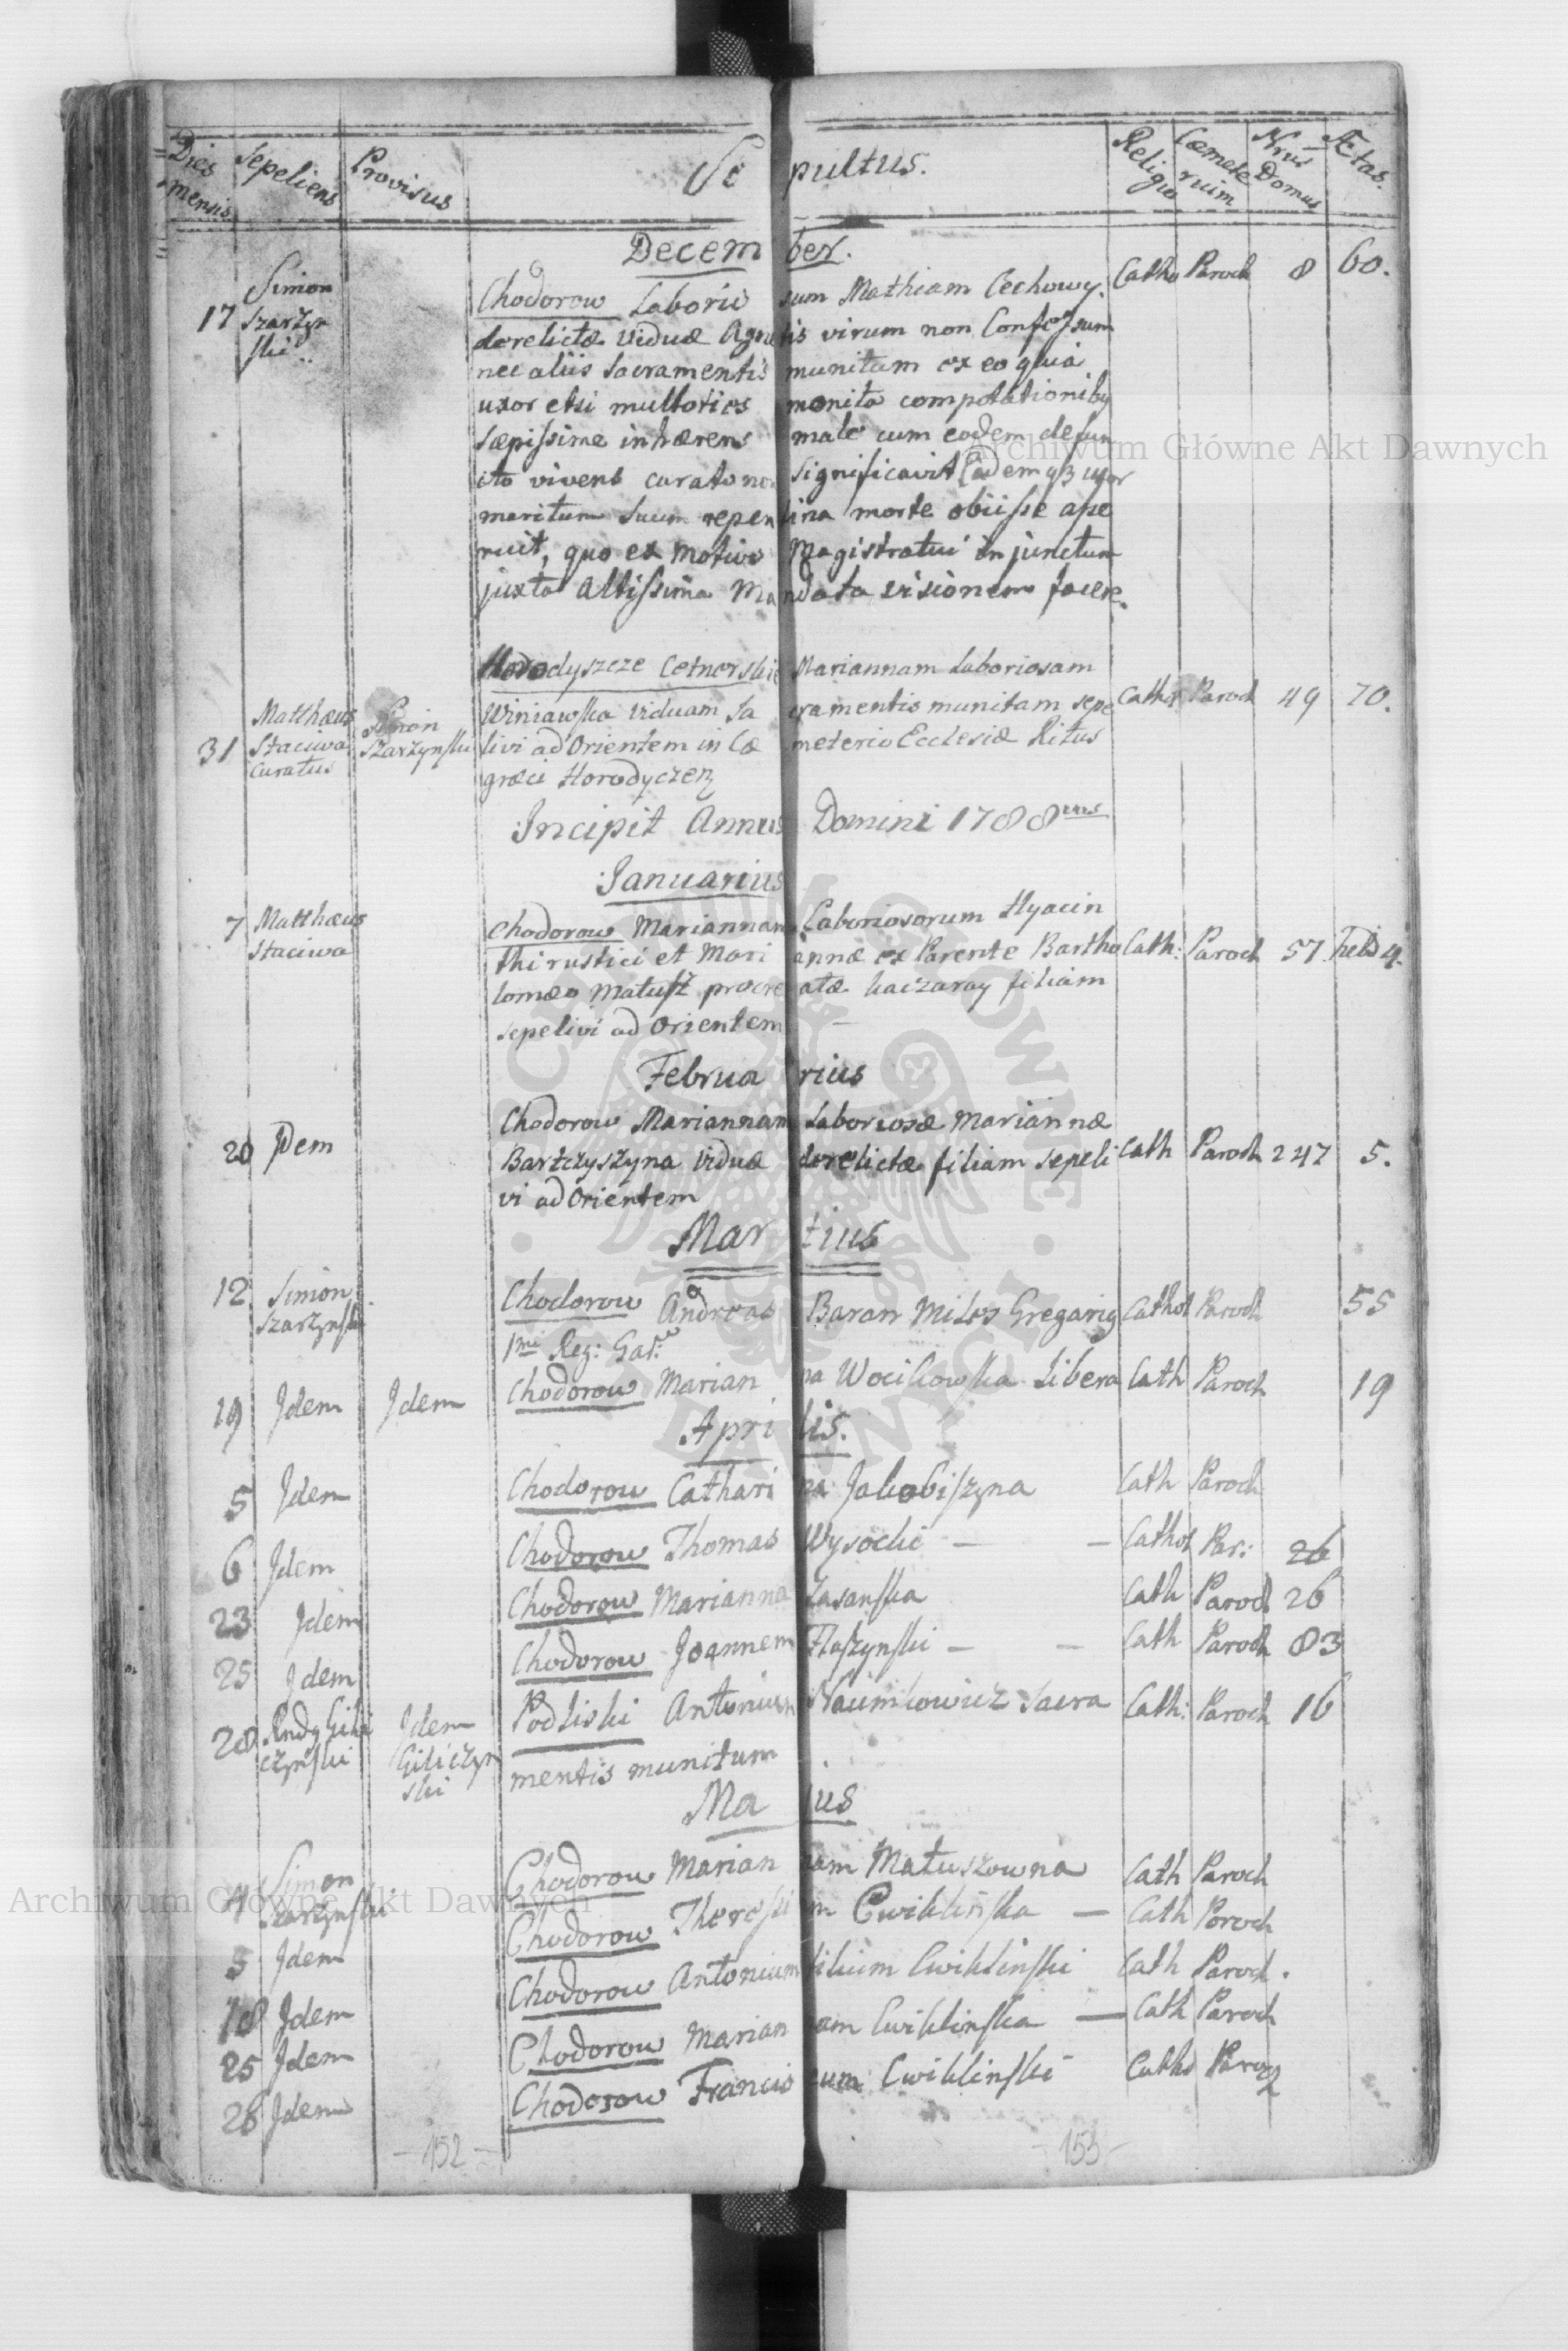 Dies mensis Sepeliens Provisus Sepultus. Religio Cœmeteruim Nrus Domus Ætas.
December.
17 Simon Szarzyn ski Chodorow Laborio sum Mathiam Cechowy. Catho Paroch 8 60.
derelictæ viduæ Agnetis virum non Confessum
nec aliis Sacramentis munitum ex eo quia
uxor etsi multoties monita compotationiby
sæpissime inhærens male cum eodem defun
cto vivens curato non significavit Eademq3 uxor
maritum suum repentina morte obiisse ape
ruit, quo ex motivo Magistratui injunctum
juxta Altissima Mandata visionem facere.
Horodyszcze Cetnerskie Mariannam Laboriosam
31 Matthæus Staciwa Curatus Simon Szarzynski Winiawska viduam Sa cramentis munitam sepe Cathol Paroch 49 70.
livi ad Orientem in Cœ meterio Ecclesiæ Ritus
græci Horodyczen
Incipit Annus Domini 1788vus
Januarius
7 Matthæus Staciwa Chodorow Mariannam Laboriosorum Hyacin
thi rustici et Mari annæ ex Parente Bartho Cath: Paroch 57. hebd 4.
lomæo Matusz procre atæ Kaczaray filiam
sepelivi ad Orientem
Februa rius
Chodorow Mariannam Laboriosæ Mariannæ
20 Idem Bartczyszyna viduæ derelictæ filiam sepeli Cath Paroch 247 5.
vi ad Orientem
Mar tius
12 Simon Szarzynski Chodorow Andreas Baran Miles Gregarig Cathol Paroch 55
1mi Reg: Gar:
19 Idem Idem Chodorow Marian na Wocikowska Libera Cath Paroch 19
Apri lis.
5 Idem Chodorow Cathari na Jakobiszyna Cath Paroch
6 Idem Chodorow Thomas Wysocki — — Cathol Par: 26
23 Idem Chodorow Marianna Zasanska Cath Paroch 26
25 Idem Chodorow Joannem Flaszynski — — Cath Paroch 83
28 Andg Gili czynski Idem Giliczyn ski Podliski Antonium Naumkowicz Sacra Cath: Paroch 16
mentis munitum
Ma jus
4 Simon Szarzynski Chodorow Marian nam Matuszowna Cath Paroch
5 Idem Chodorow Theresi am Cwiklinska — Cath Paroch
18 Idem Chodorow Antonium filium Cwiklinski Cath Paroch.
25 Idem Chodorow Marian nam Cwiklinska — Cath Paroch
26 Idem Chodorow Francis cum Cwiklinski Catho Paroq
– 152 – – 153 –
Archiwum Główne Akt Dawnych
Archiwum Główne Akt Dawnych
ARCHIWUM GŁÓWNE AKT DAWNYCH